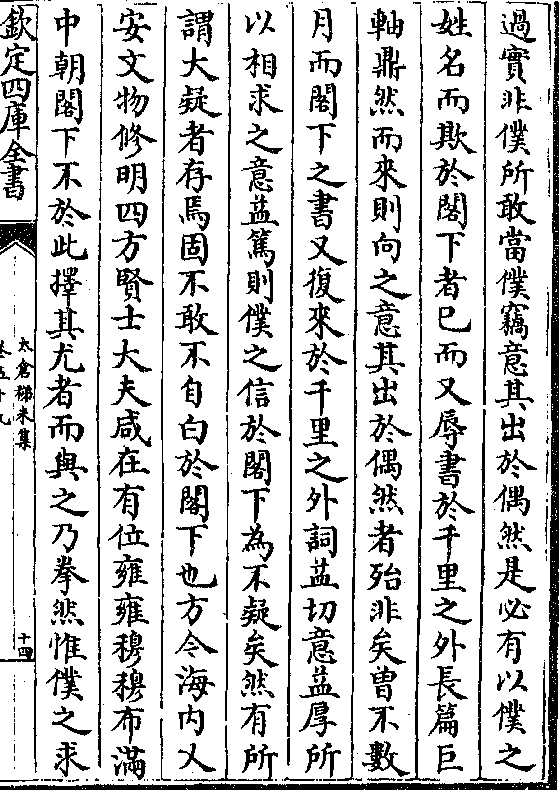 過實非僕所敢當僕竊意其出於偶然是必有以僕之
姓名而欺於閣下者已而又辱書於千里之外長篇巨
軸鼎然而來則向之意其出於偶然者殆非矣曾不數
月而閣下之書又復來於千里之外詞益切意益厚所
以相求之意益篤則僕之信於閣下為不疑矣然有所
謂大疑者存焉固不敢不自白於閣下也方今海内乂
安文物修明四方賢士大夫咸在有位雍雍穆穆布滿
中朝閣下不於此擇其尤者而與之乃拳然惟僕之求
欽定四庫全書
太倉稊米集
卷五十九
十四